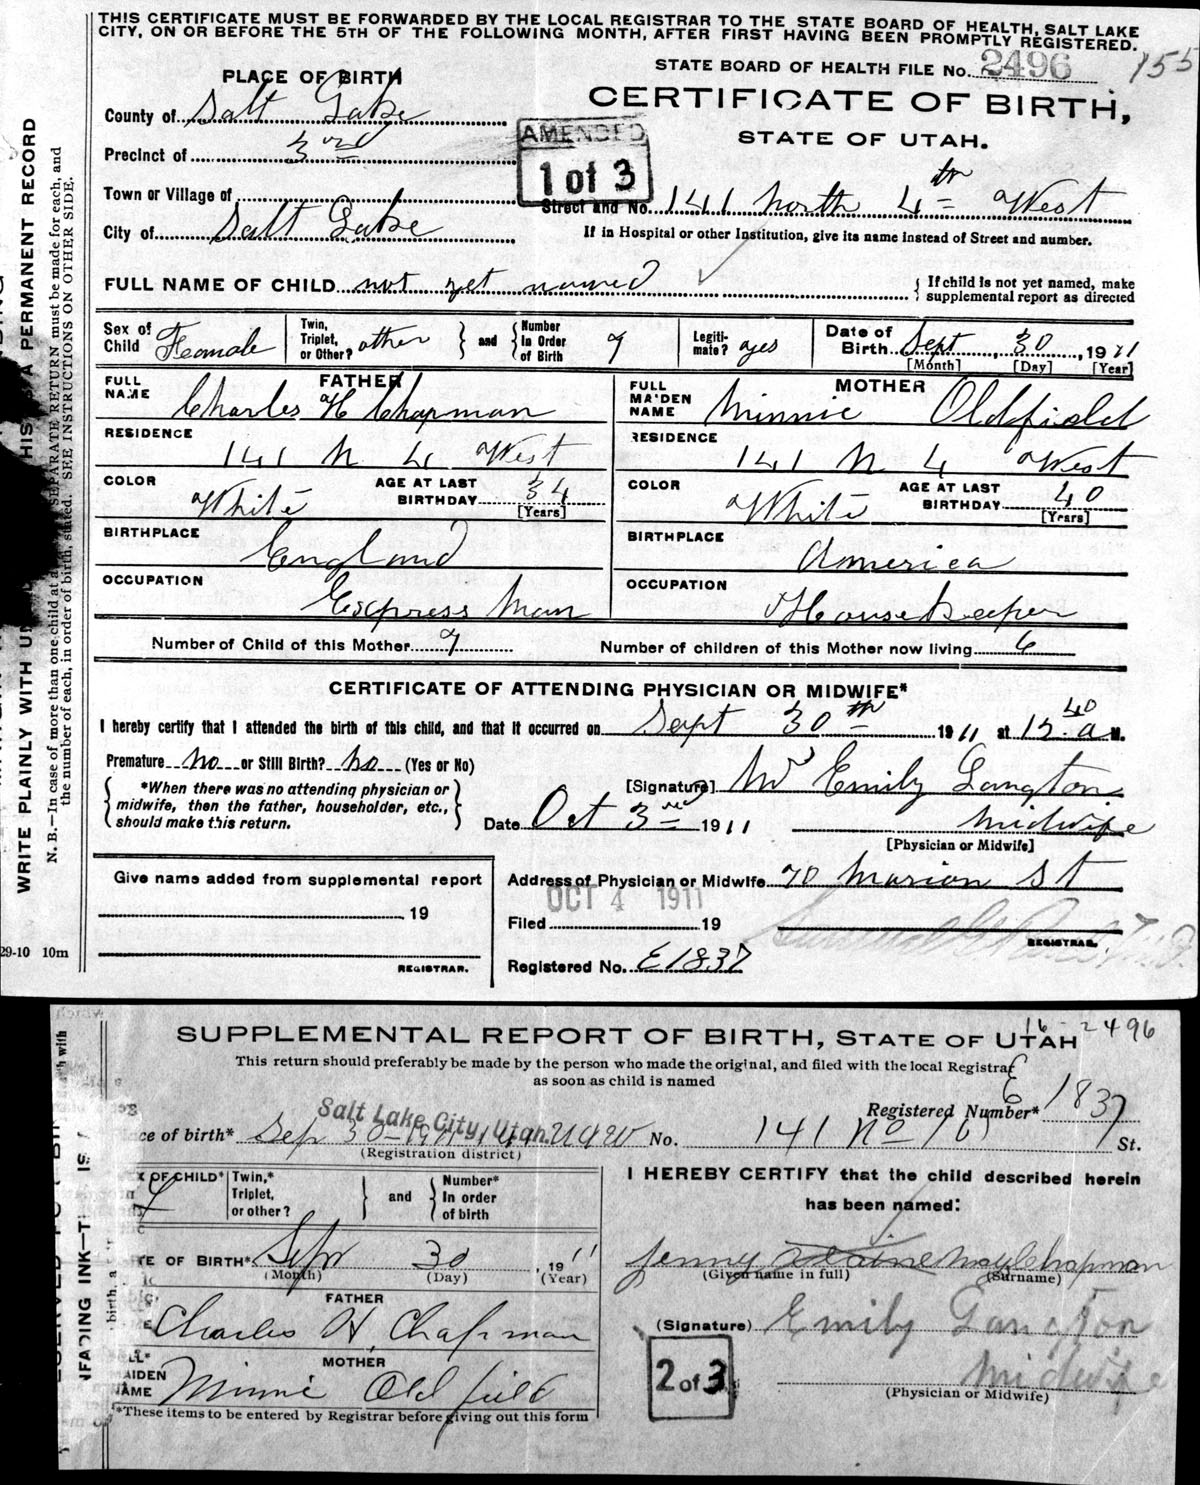 THIS CERTIFICATE MUST BE FORWARDED BY THE LOCAL REGISTRAR TO THE STATE BOARD OF HEALTH, SALT LAKE
CITY, ON OR BEFORE THE 5TH OF THE FOLLOWING MONTH, AFTER FIRST HAVING BEEN PROMPTLY REGISTERED.
STATE BOARD OF HEALTH FILE No. 2496 155
PLACE OF BIRTH
CERTIFICATE OF BIRTH,
STATE OF UTAH.
County of Salt Lake
Precinct of 3rd
AMENDED
1 of 3
Town or Village of
Street and No. 141 North 4th West
City of Salt Lake
If in Hospital or other Institution, give its name instead of Street and number.
FULL NAME OF CHILD not yet named
If child is not yet named, make
supplemental report as directed
Sex of Child Female
Twin, Triplet, or Other? other
and Number In Order of Birth 7
Legiti-mate? yes
Date of Birth Sept 30, 1911
[Month] [Day] [Year]
FATHER
FULL NAME Charles H Chapman
MOTHER
FULL MAIDEN NAME Minnie Oldfield
RESIDENCE 141 N 4 West
RESIDENCE 141 N 4 West
COLOR White AGE AT LAST BIRTHDAY 34 [Years]
COLOR White AGE AT LAST BIRTHDAY 40 [Years]
BIRTHPLACE England
BIRTHPLACE America
OCCUPATION Express Man
OCCUPATION Housekeeper
Number of Child of this Mother 7
Number of children of this Mother now living 6
CERTIFICATE OF ATTENDING PHYSICIAN OR MIDWIFE*
I hereby certify that I attended the birth of this child, and that it occurred on Sept 30th 1911 at 12.40 a M.
Premature no or Still Birth? no (Yes or No)
*When there was no attending physician or
midwife, then the father, householder, etc.,
should make this return.
[Signature] Mrs Emily Langton
Date Oct 3rd 1911 Midwife
[Physician or Midwife]
Give name added from supplemental report
19
REGISTRAR.
Address of Physician or Midwife 70 Marion St
OCT 4 1911
Filed 19
REGISTRAR.
Registered No. E1837
WRITE PLAINLY WITH
HIS IS A PERMANENT RECORD
N. B.—In case of more than one child at a SEPARATE RETURN must be made for each, and
the number of each, in order of birth, stated. SEE INSTRUCTIONS ON OTHER SIDE.
29-10 10m
SUPPLEMENTAL REPORT OF BIRTH, STATE OF UTAH
16-2496
This return should preferably be made by the person who made the original, and filed with the local Registrar
as soon as child is named
Registered Number* E 1837
Salt Lake City, Utah.
ce of birth* Sep 30-1911 No. 141 No St.
(Registration district)
X OF CHILD* F
Twin,* Triplet, or other?
and Number* In order of birth
I HEREBY CERTIFY that the child described herein
has been named:
TE OF BIRTH* Sep 30, 1911
(Month) (Day) (Year)
Jenny May Chapman
(Given name in full) (Surname)
FATHER
Charles H. Chapman
(Signature) Emily Langton
MOTHER
AIDEN NAME Minnie Oldfield
2 of 3
Midwife
(Physician or Midwife)
*These items to be entered by Registrar before giving out this form